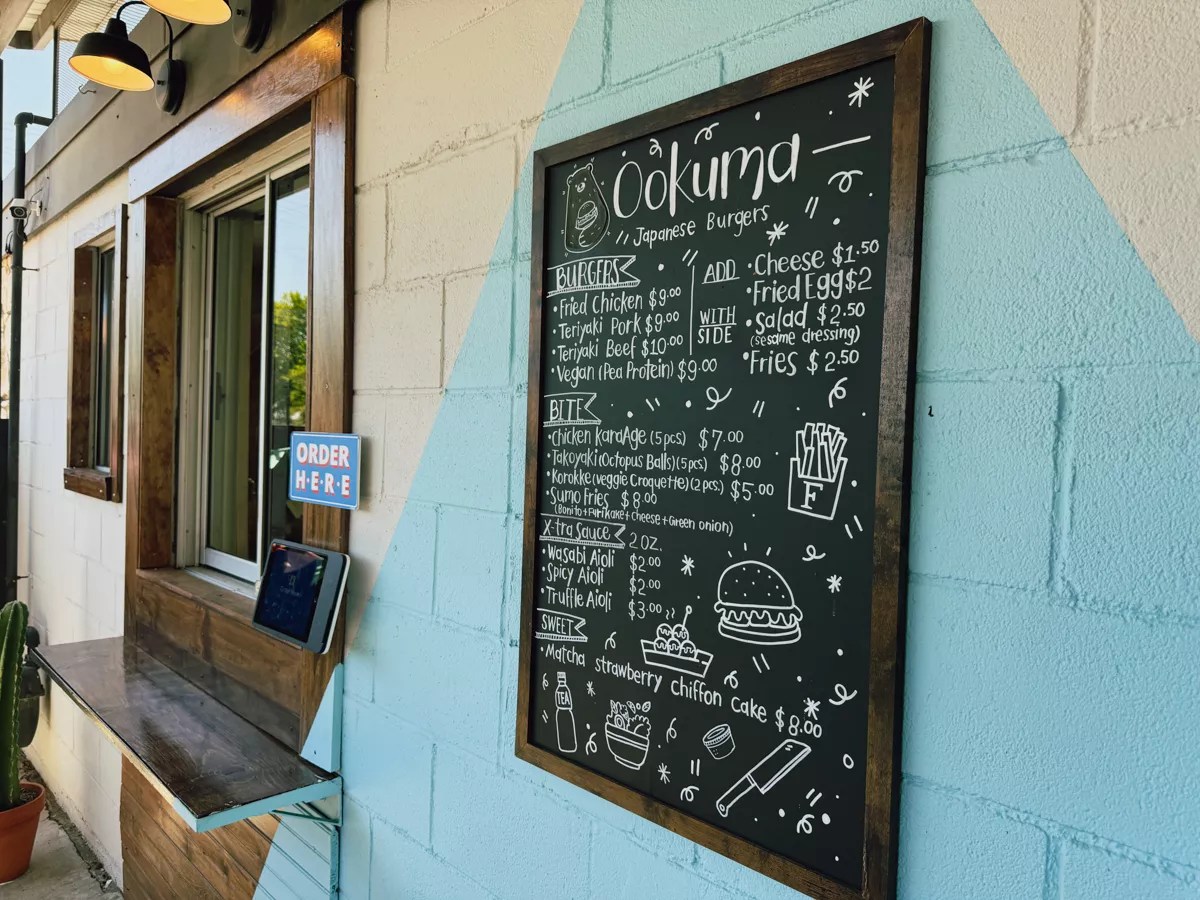 ORDER
H·E·R·E
Ookuma
Japanese Burgers
BURGERS
• Fried Chicken $9.00
• Teriyaki Pork $9.00
• Teriyaki Beef $10.00
• Vegan (Pea Protein) $9.00
ADD
• Cheese $1.50
• Fried Egg $2
WITH
SIDE
• Salad $2.50
(sesame dressing)
• Fries $2.50
BITE
• Chicken KaraAge (5pcs) $7.00
• Takoyaki (Octopus Balls) (5pcs) $8.00
• Korokke (veggie Croquette) (2pcs.) $5.00
• Sumo Fries $8.00
(Bonito + Furikake + cheese + Green onion)
X-tra Sauce 2 OZ.
• Wasabi Aioli $2.00
• Spicy Aioli $2.00
• Truffle Aioli $3.00
SWEET
• Matcha strawberry chiffon cake $8.00
F
TEA